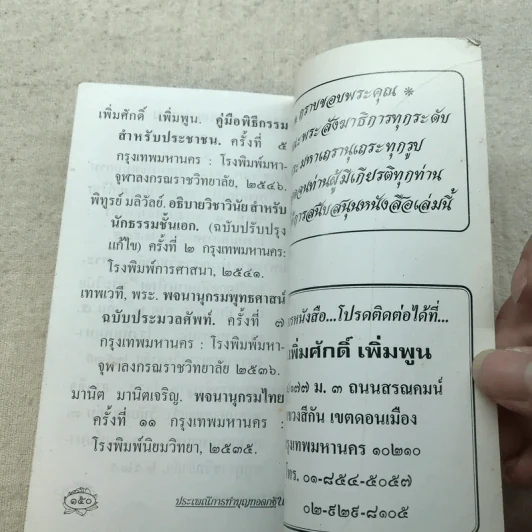 เพิ่มศักดิ์ เพิ่มพูน. คู่มือพิธีกรรม
สำหรับประชาชน. ครั้งที่ ๕
กรุงเทพมหานคร : โรงพิมพ์มหา-
จุฬาลงกรณราชวิทยาลัย, ๒๕๔๖.
พิทูรย์ มลิวัลย์. อธิบายวิชาวินัยสำหรับ
นักธรรมชั้นเอก. (ฉบับปรับปรุง
แก้ไข) ครั้งที่ ๒ กรุงเทพมหานคร:
โรงพิมพ์การศาสนา, ๒๕๔๑.
เทพเวที, พระ. พจนานุกรมพุทธศาสน์
ฉบับประมวลศัพท์. ครั้งที่ ๗
กรุงเทพมหานคร : โรงพิมพ์มหา-
จุฬาลงกรณราชวิทยาลัย ๒๕๓๖.
มานิต มานิตเจริญ. พจนานุกรมไทย
ครั้งที่ ๑๑ กรุงเทพมหานคร :
โรงพิมพ์นิยมวิทยา, ๒๕๓๕.
๑๕๐
ประเพณีการทำบุญทอดกฐิน
กราบขอบพระคุณ *
พระสังฆาธิการทุกระดับ
มหาเถรานุเถระทุกรูป
ท่านผู้มีเกียรติทุกท่าน
สนับสนุนหนังสือเล่มนี้
หนังสือ...โปรดติดต่อได้ที่...
เพิ่มศักดิ์ เพิ่มพูน
๑๗๗ ม. ๓ ถนนสรณคมน์
แขวงสีกัน เขตดอนเมือง
กรุงเทพมหานคร ๑๐๒๑๐
โทร. ๐๑-๘๕๔-๕๐๕๗
๐๒-๙๒๙-๘๑๐๕